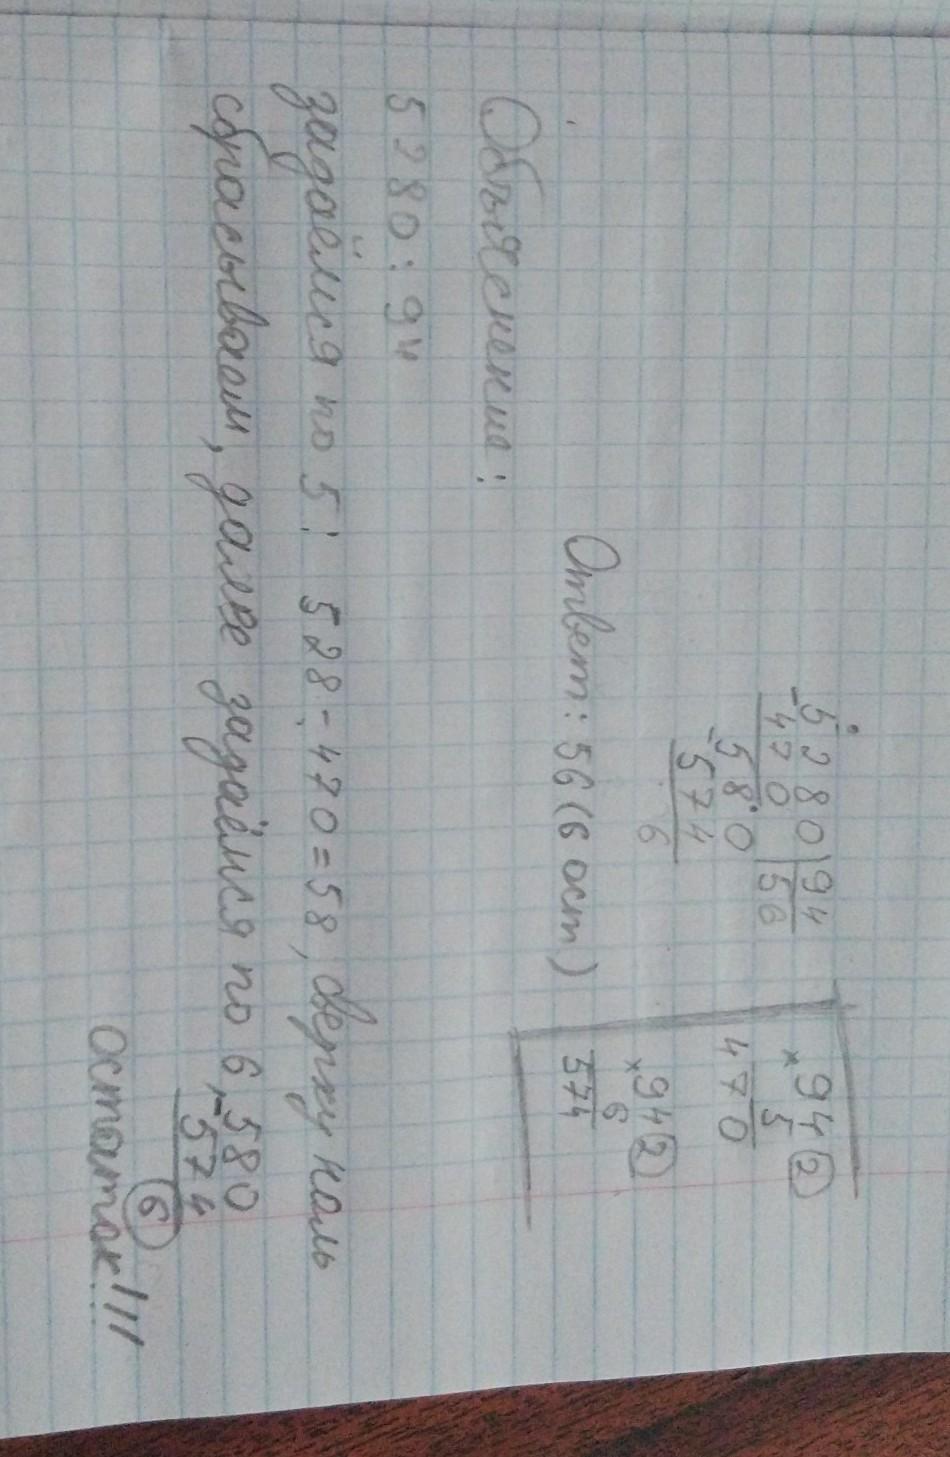 5280|94
-470 |56
-580
574
6
×94②
5
470
×94②
6
574
Ответ: 56 (6 ост)
Объяснение:
5280:94
задаёмся по 5: 528-470=58, сверху ноль
сбрасываем, далее задаёмся по 6, -580
574
6
остаток!!!